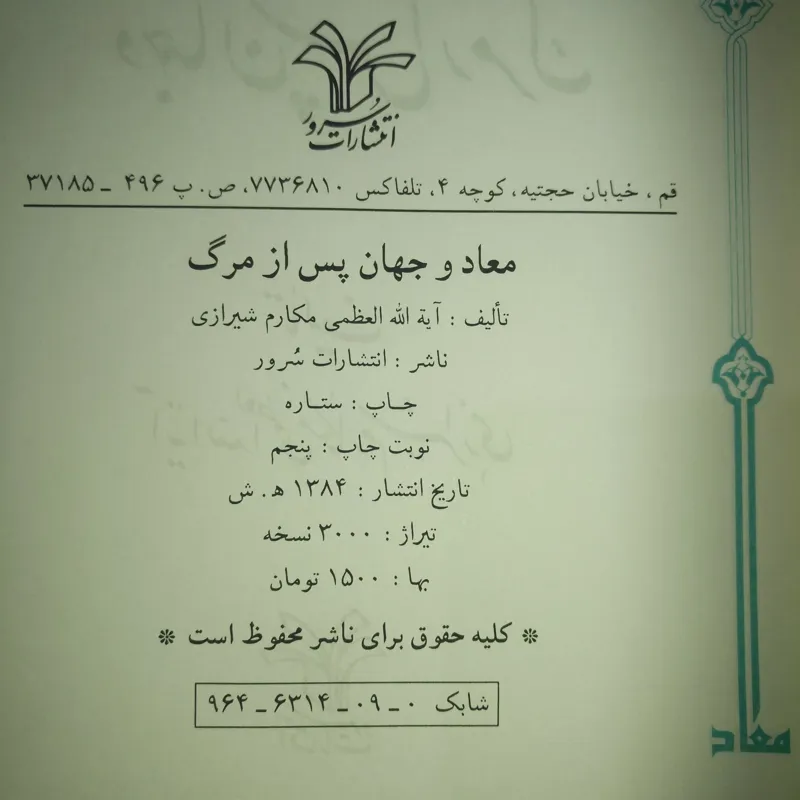 انتشارات سُرور
قم ، خیابان حجتیه، کوچه ۴، تلفاکس ۷۷۳۶۸۱۰، ص. پ ۴۹۶ ـ ۳۷۱۸۵
معاد و جهان پس از مرگ
تألیف : آیة الله العظمی مکارم شیرازی
ناشر : انتشارات سُرور
چـاپ : ستـاره
نوبت چاپ : پنجم
تاریخ انتشار : ۱۳۸۴ ه‍. ش
تیراژ : ۳۰۰۰ نسخه
بها : ۱۵۰۰ تومان
❊ کلیه حقوق برای ناشر محفوظ است ❊
شابک ۰ ـ ۰۹ ـ ۶۳۱۴ ـ ۹۶۴
معاد